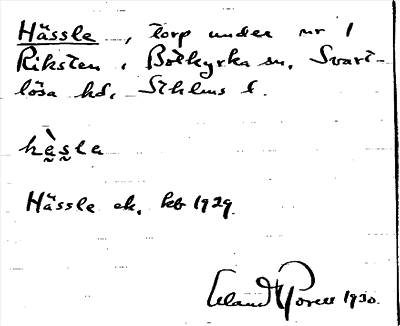 Hässle, torp under nr 1
Riksten, Botkyrka sn, Svart-
lösa hd, Sthlms l.
hä̀sla
Hässle ek. kb 1929.
1930.